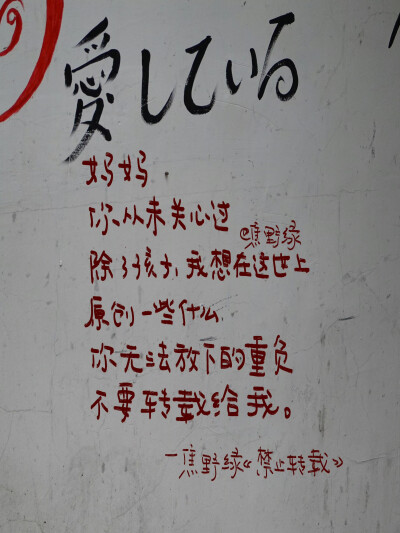 愛している
妈妈
你从未关心过
@焦野缘
除了孩子,我想在这世上
原创一些什么
你无法放下的重负
不要转载给我。
—焦野缘《禁止转载》